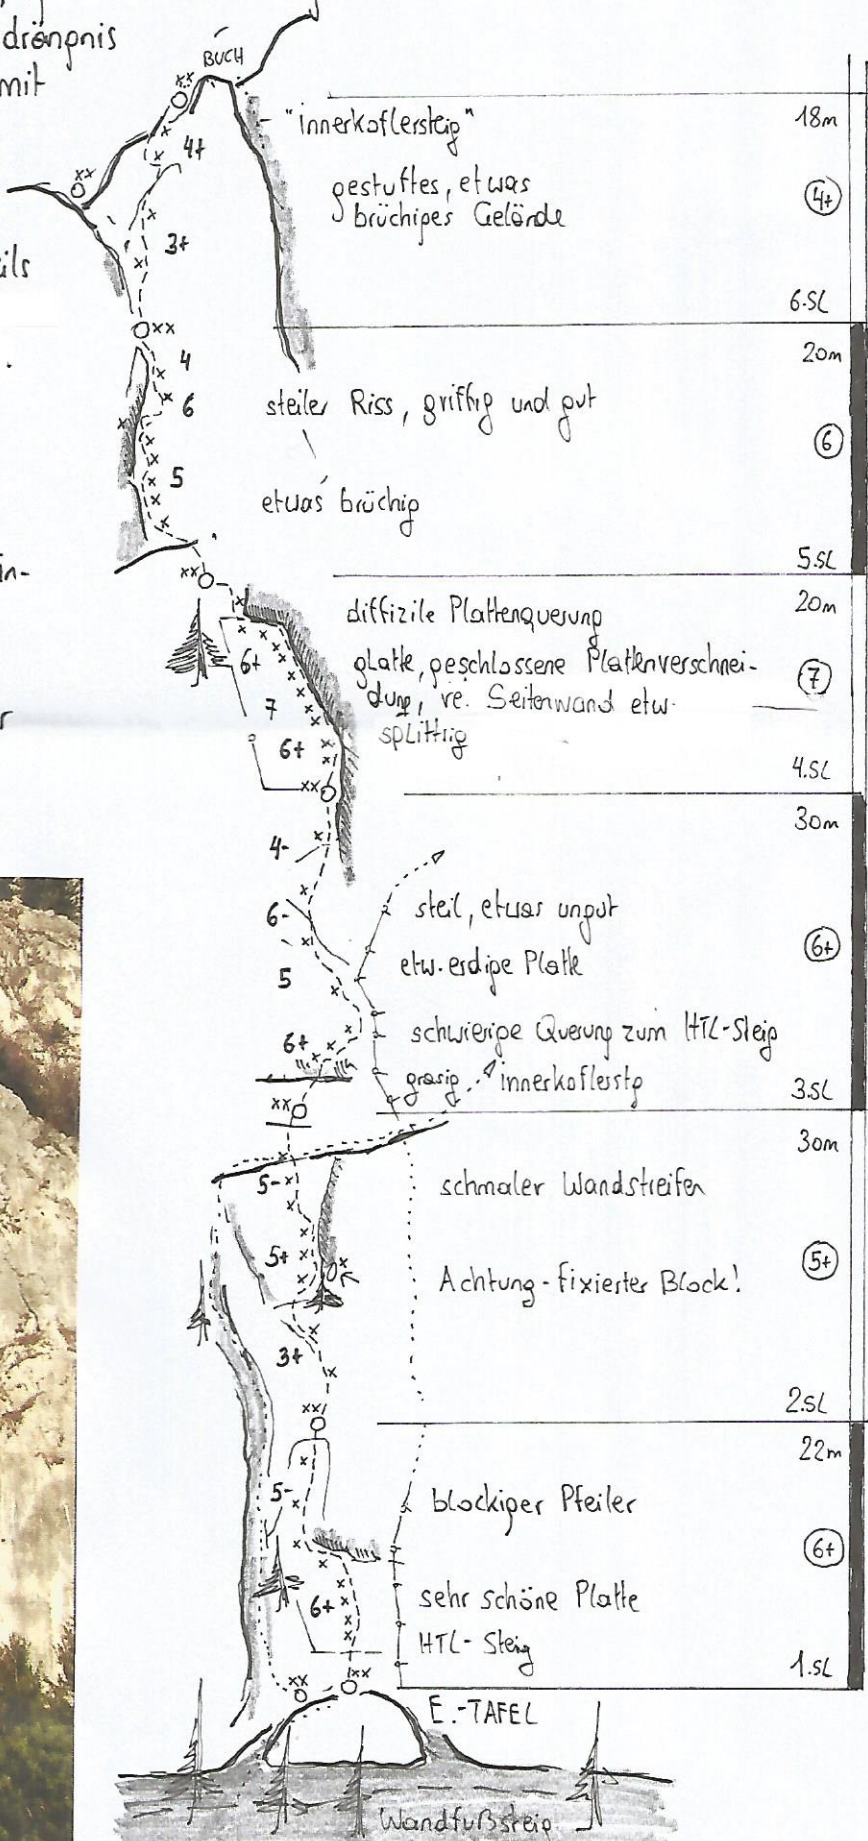 drängnis
mit
ils
in-
BUCH
"innerkoflersteig"
18m
4+
gestuftes, etwas
brüchiges Gelände
4+
3+
6.SL
20m
4
6
steiler Riss, griffig und gut
6
5
etwas brüchig
5.SL
20m
diffizile Plattenquerung
6+
glatte, geschlossene Plattenverschnei-
dung, re. Seitenwand etw.
splittrig
7
7
6+
4.SL
30m
4-
6-
steil, etwas ungut
6+
etw. erdige Platte
5
schwierige Querung zum HTL-Steig
6+
grasig
innerkoflerstg
3.SL
30m
5-
schmaler Wandstreifen
5+
Achtung - fixierter Block!
5+
3+
2.SL
22m
5-
blockiger Pfeiler
6+
sehr schöne Platte
6+
HTL-Steig
1.SL
E.-TAFEL
Wandfußsteig